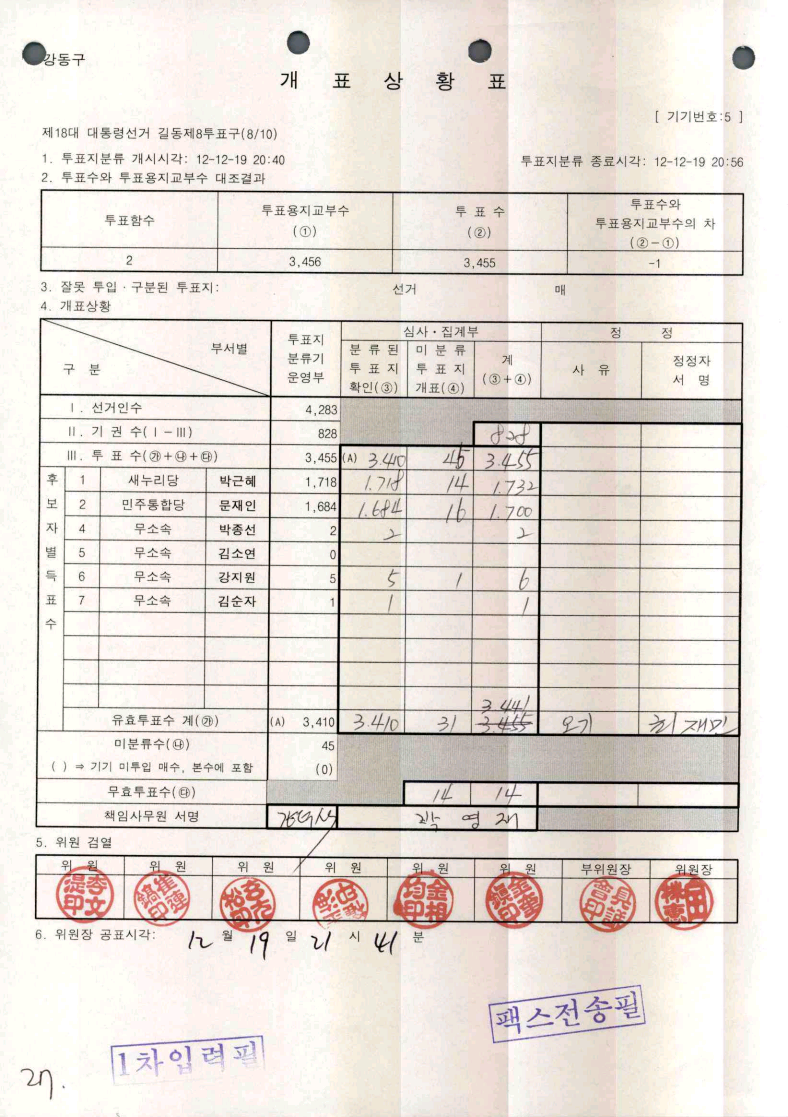 강동구
개 표 상 황 표
[ 기기번호:5 ]
제18대 대통령선거 길동제8투표구(8/10)
1. 투표지분류 개시시각: 12-12-19 20:40 투표지분류 종료시각: 12-12-19 20:56
2. 투표수와 투표용지교부수 대조결과
투표함수 투표용지교부수 (①) 투 표 수 (②) 투표수와 투표용지교부수의 차 (②-①)
2 3,456 3,455 -1
3. 잘못 투입·구분된 투표지: 선거 매
4. 개표상황
구 분 부서별 투표지 분류기 운영부 심사·집계부 정 정
분 류 된 투 표 지 확인(③) 미 분 류 투 표 지 개표(④) 계 (③+④) 사 유 정정자 서 명
Ⅰ. 선거인수 4,283
Ⅱ. 기 권 수(Ⅰ-Ⅲ) 828 828
Ⅲ. 투 표 수(㉮+㉯+㉰) 3,455 (A) 3.410 45 3.455
후보자별득표수
1 새누리당 박근혜 1,718 1.718 14 1.732
2 민주통합당 문재인 1,684 1.684 16 1.700
4 무소속 박종선 2 2 2
5 무소속 김소연 0
6 무소속 강지원 5 5 1 6
7 무소속 김순자 1 1 1
3.441
유효투표수 계(㉮) (A) 3,410 3.410 31 3.455 오기 최재민
미분류수(㉯) 45
( ) ⇒ 기기 미투입 매수, 본수에 포함 (0)
무효투표수(㉰) 14 14
책임사무원 서명 곽 영 재
5. 위원 검열
위 원 위 원 위 원 위 원 위 원 위 원 부위원장 위원장
6. 위원장 공표시각: 12 월 19 일 21 시 41 분
팩스전송필
1차입력필
27.